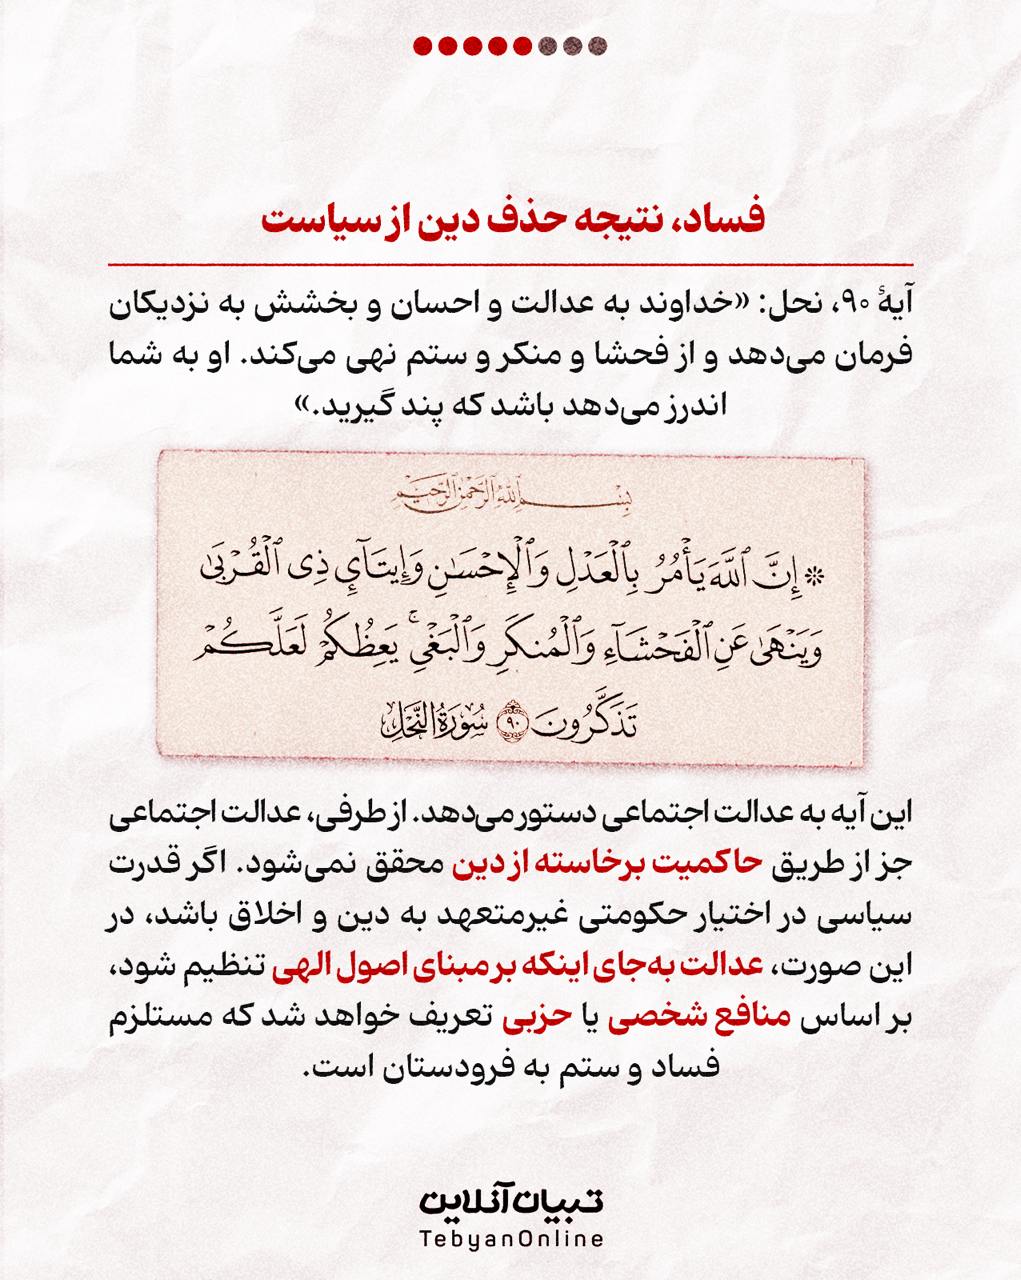 فساد، نتیجه حذف دین از سیاست
آیهٔ ۹۰، نحل: «خداوند به عدالت و احسان و بخشش به نزدیکان
فرمان می‌دهد و از فحشا و منکر و ستم نهی می‌کند. او به شما
اندرز می‌دهد باشد که پند گیرید.»
بِسْمِ ٱللَّهِ ٱلرَّحْمَٰنِ ٱلرَّحِيمِ
۞ إِنَّ ٱللَّهَ يَأْمُرُ بِٱلْعَدْلِ وَٱلْإِحْسَٰنِ وَإِيتَآئِ ذِى ٱلْقُرْبَىٰ
وَيَنْهَىٰ عَنِ ٱلْفَحْشَآءِ وَٱلْمُنكَرِ وَٱلْبَغْىِ ۚ يَعِظُكُمْ لَعَلَّكُمْ
تَذَكَّرُونَ ۹۰ سُورَةُ النَّحْلِ
این آیه به عدالت اجتماعی دستور می‌دهد. از طرفی، عدالت اجتماعی
جز از طریق حاکمیت برخاسته از دین محقق نمی‌شود. اگر قدرت
سیاسی در اختیار حکومتی غیرمتعهد به دین و اخلاق باشد، در
این صورت، عدالت به‌جای اینکه بر مبنای اصول الهی تنظیم شود،
بر اساس منافع شخصی یا حزبی تعریف خواهد شد که مستلزم
فساد و ستم به فرودستان است.
تبیان آنلاین
TebyanOnline